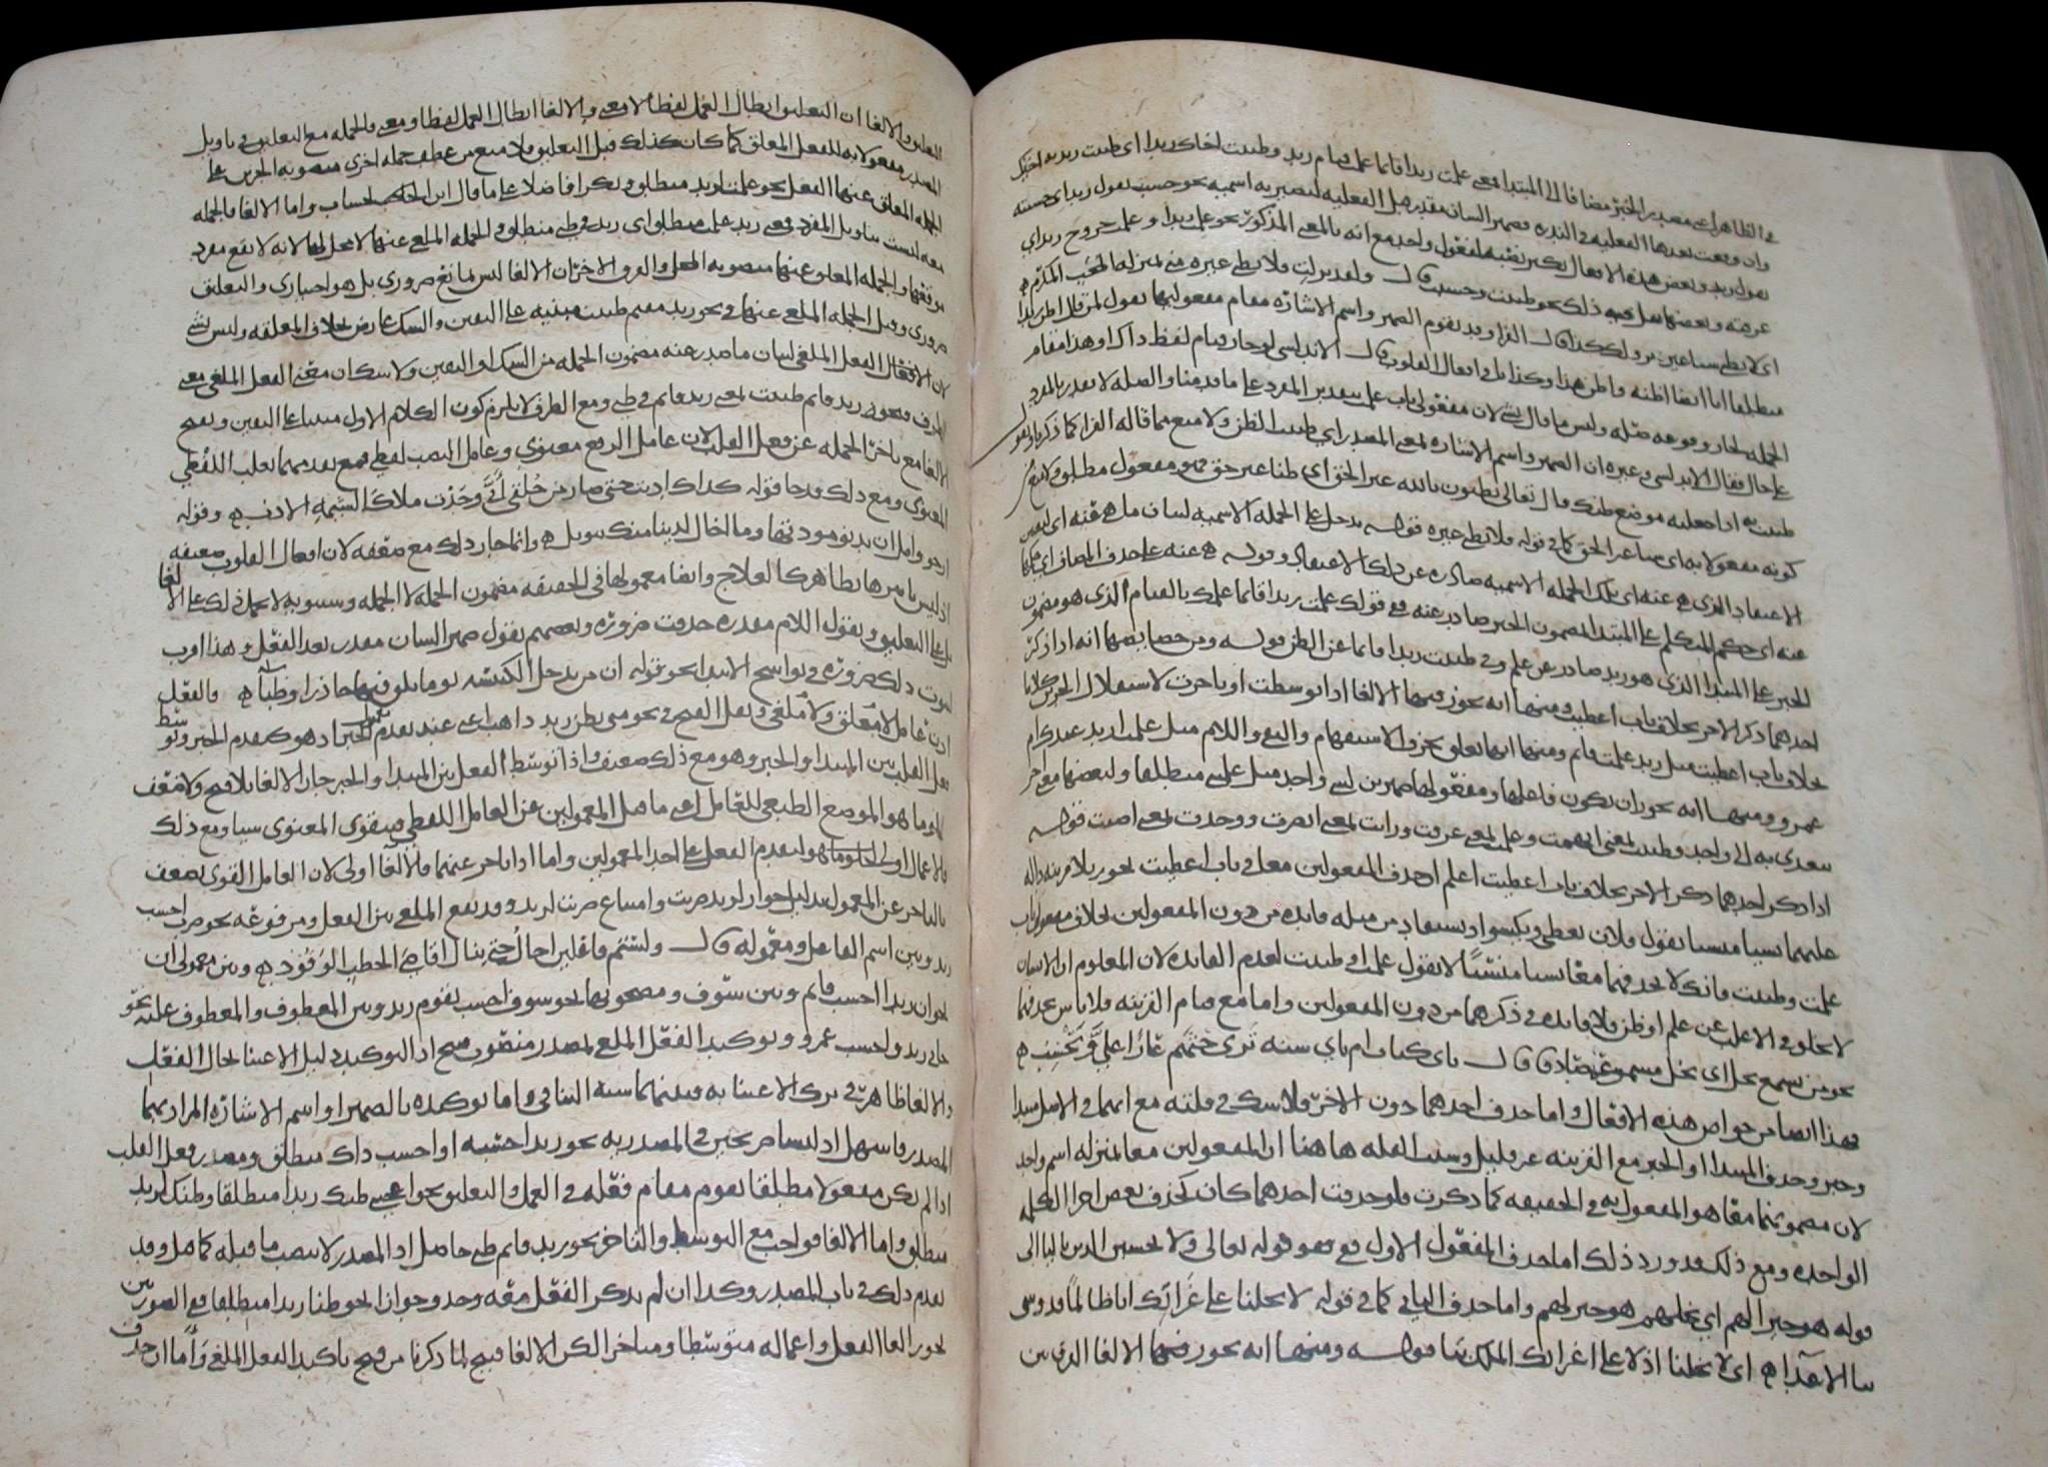 في الظاهر اعني مصدر الخبر مضافا الى المبتدا فمعنى علمت زيدا قائما علمت قيام زيد وظننت اخاك زيدا اى ظننت زيدية اخيك
وان وقعت بعدها الفعلية في الندرة فضمير الشان مقدر قبل الفعلية لتصير به اسمية نحو حسبت يقول زيد اى حسبته
يقول زيد وبعض هذه الافعال يكثر نصبه لمفعول واحد مع انه بالمعنى المذكور نحو علمت زيدا وعلمت خروج زيد اى
عرفته وبعضها يقل فيه ذلك نحو ظننت وحسبت قال ولقد نزلت فلا تظني غيره مني بمنزلة المحب المكرم
اى لا تظني شيئا غير نزولك كذا قال الفرا وقد يقوم الضمير واسم الاشارة مقام مفعوليهما تقول لمن قال اظن زيدا
منطلقا انا ايضا اظنه واظن هذا وكذا في افعال القلوب قال الاندلسي لو جاز قيام لفظ ذاك او هذا مقام
الجملة لجاز وقوعه صلة وليس ما قال بشى لان مفعولى باب علمت بتقدير المفرد على ما قدمنا والصلة لا تقدر بالمفرد
على حال فقال الاندلسي وغيره ان الضمير واسم الاشارة بمعنى المصدر اى ظننت الظن ولا منع مما قاله الفرا كما ذكرنا وتقول
ظننت به اذا جعلته موضع ظنك قال تعالى يظنون بالله غير الحق اى ظنا غير حق فهو مفعول مطلق ولا منع من
كونه مفعولا به اى شيئا غير الحق كما في قوله فلا تظني غيره قوله يدخل على الجملة الاسمية لبيان ما هى عنه اى لتعيين
الاعتقاد الذي هى عنه اى تلك الجملة الاسمية صادرة عن ذلك الاعتقاد وقوله هى عنه على حذف المضاف اى حكمها
عنه اى حكم المتكلم على المبتدا بمضمون الخبر صادر عنه فع قولك علمت زيدا قائما علمك بالقيام الذي هو مضمون
الخبر على المبتدا الذي هو زيد صادر عن علم وفي ظننت زيدا قائما عن الظن قوله ومن خصايصها انه اذا ذكر
احدهما ذكر الاخر بخلاف باب اعطيت ومنها انه يجوز فيها الالغا اذا توسطت او تاخرت لاستقلال الجزئين كلاما
بخلاف باب اعطيت مثل زيد علمت قائم ومنها انها تعلق بحرف الاستفهام والنفي واللام مثل علمت ازيد عندك ام
عمرو ومنها انه يجوز ان يكون فاعلها ومفعولها ضميرين لشى واحد مثل علمتني منطلقا ولبعضها معنى اخر
يتعدى به الى واحد وظننت بمعنى اتهمت وعلمت بمعنى عرفت ورايت بمعنى ابصرت ووجدت بمعنى اصبت قوله
اذا ذكر احدهما ذكر الاخر بخلاف باب اعطيت اعلم ان حذف المفعولين معا في باب اعطيت يجوز بلا قرينة دالة
عليهما نسيا منسيا تقول فلان يعطي ويكسو اذ يستفاد من مثله فايدة من دون المفعولين بخلاف مفعولى باب
علمت وظننت فانك لا تحذفهما معا نسيا منسيا لا تقول علمت او ظننت لعدم الفايدة لان المعلوم ان الانسان
لا يخلو في الاغلب عن علم او ظن فلا فايدة في ذكرهما من دون المفعولين واما مع قيام القرينة فلا باس بحذفهما
نحو من يسمع يخل اى يخل مسموعه صادقا قال باى كتاب ام باي سنة ترى حبهم عارا علي وتحسب
فهذا ايضا من خواص هذه الافعال واما حذف احدهما دون الاخر فلا شك في قلته مع انهما في الاصل مبتدا
وخبر وحذف المبتدا او الخبر مع القرينة غير قليل وسبب القلة هاهنا ان المفعولين معا بمنزلة اسم واحد
لان مضمونهما معا هو المفعول به في الحقيقة كما ذكرت فلو حذفت احدهما كان كحذف بعض اجزا الكلمة
الواحدة ومع ذلك فقد ورد ذلك اما حذف المفعول الاول فع فهو قوله تعالى ولا يحسبن الذين بالياء الى
قوله هو خيرا لهم اى بخلهم هو خيرا لهم واما حذف الثاني كما في قوله لا تخلنا على غراتك انا طالما قد وشى
بنا الاعداء اى لا تخلنا اذلة على اغرائك الملك بنا قوله ومنها انه يجوز فيها الالغا الفرق بين
التعليق والالغا ان التعليق ابطال العمل لفظا لا معنى والالغا ابطال العمل لفظا ومعنى فالجملة مع التعليق في تاويل
المصدر مفعولا به للفعل المعلق كما كان كذلك قبل التعليق فلا منع من عطف جملة اخرى منصوبة الجزئين على
الجملة المعلق عنها الفعل نحو علمت لزيد منطلق وبكرا فاضلا على ما قال ابن الخشاب واما الالغا فالجملة
معه ليست بتاويل المفرد فمعنى زيد علمت منطلق اى زيد في ظني منطلق والجملة الملغى عنها لا محل لها لانه لا يقع مفرد
موقعها والجملة المعلق عنها منصوبة المحل والفرق الاخر ان الالغا ليس لمانع ضروري بل هو اختياري والتعليق
ضروري وقيل الجملة الملغى عنها في نحو زيد مقيم ظننت مبنية على اليقين والشك عارض بخلاف المعلقة وليس بشى
لان الافعال الفعل الملغى لبيان ما صدر عنه مضمون الجملة من الشك او اليقين ولا شك ان معنى الفعل الملغى معنى
الظرف فنحو زيد قائم ظننت بمعنى زيد قائم في ظني ومع الظرف لا يلزم كون الكلام الاول مبنيا على اليقين ويقبح
الالغا مع تاخر الجملة عن فعل القلب لان عامل الرفع معنوي وعامل النصب لفظي فمع تقدمهما يغلب اللفظي
المعنوي ومع ذلك قد جا قوله كذاك ادبت حتى صار من خلقي اني وجدت ملاك الشيمة الادب وقوله
ارجو وامل ان تدنو مودتها وما اخال لدينا منك تنويل وانما جاز ذلك مع ضعفه لان افعال القلوب ضعيفة
اذ ليس تاثيرها بظاهر كالعلاج وايضا معمولها في الحقيقة مضمون الجملة لا الجملة وسيبويه لا يحمل ذلك على الالغا
بل على التعليق ويقول اللام مقدرة حذفت ضرورة وبعضهم يقول ضمير الشان مقدر بعد الفعل وهذا اقرب
لثبوت ذلك ضرورة في نواسخ الابتدا نحو قوله ان من يدخل الكنيسة يوما يلق فيها جاذرا وظباء فالفعل
اذن عامل لا معلق ولا ملغى ويقل القبح في نحو متى تظن زيد ذاهب اعني عند تقدم الخبر اذ هو كتقدم الخبر وتوسط
فعل القلب بين المبتدا والخبر وهو مع ذلك ضعيف واذا توسط الفعل بين المبتدا والخبر جاز الالغا بلا قبح ولا ضعف
بالباخر عن المعمول بدليل جواز لزيد ضربت وامتناع ضربت لزيد وقد يقع الملغى بين الفعل ومرفوعه نحو ضرب احسب
زيد وبين اسم الفاعل ومعموله قال ولستم فاعلين اخال حتى ينال اقاصي الحطب الوقود وبين معمولى ان
نحو ان زيدا احسب قائم وبين سوف ومصحوبها نحو سوف احسب يقوم زيد وبين المعطوف والمعطوف عليه نحو
جاني زيد واحسب عمرو وتوكيد الفعل الملغى بمصدر منصوب قبيح اذ التوكيد دليل الاعتنا بحال الفعل
والالغا ظاهر في ترك الاعتنا به فبينهما شبه التنافي واما توكيده بالضمير او اسم الاشارة المراد بهما
المصدر فاسهل اذ ليسا صريحين في المصدرية نحو زيد احسبه او احسب ذاك منطلق ومصدر فعل القلب
اذا لم يكن مفعولا مطلقا يقوم مقام فعله في العمل والتعليق نحو اعجبني ظنك زيدا منطلقا وظنك لزيد
منطلق واما الالغا فواجب مع التوسط والتاخر نحو زيد قائم ظني حاصل اذ المصدر لا ينصب ما قبله كما قيل وقد
تقدم ذلك في باب المصدر وكذا ان لم يذكر الفعل معه وحذفه وجوبا نحو ظنا زيدا منطلقا في الصورتين
يجوز الغا الفعل واعماله متوسطا ومتاخرا لكن الالغا قبيح لما ذكرنا من قبح تاكيد الفعل الملغى واما ان حذف